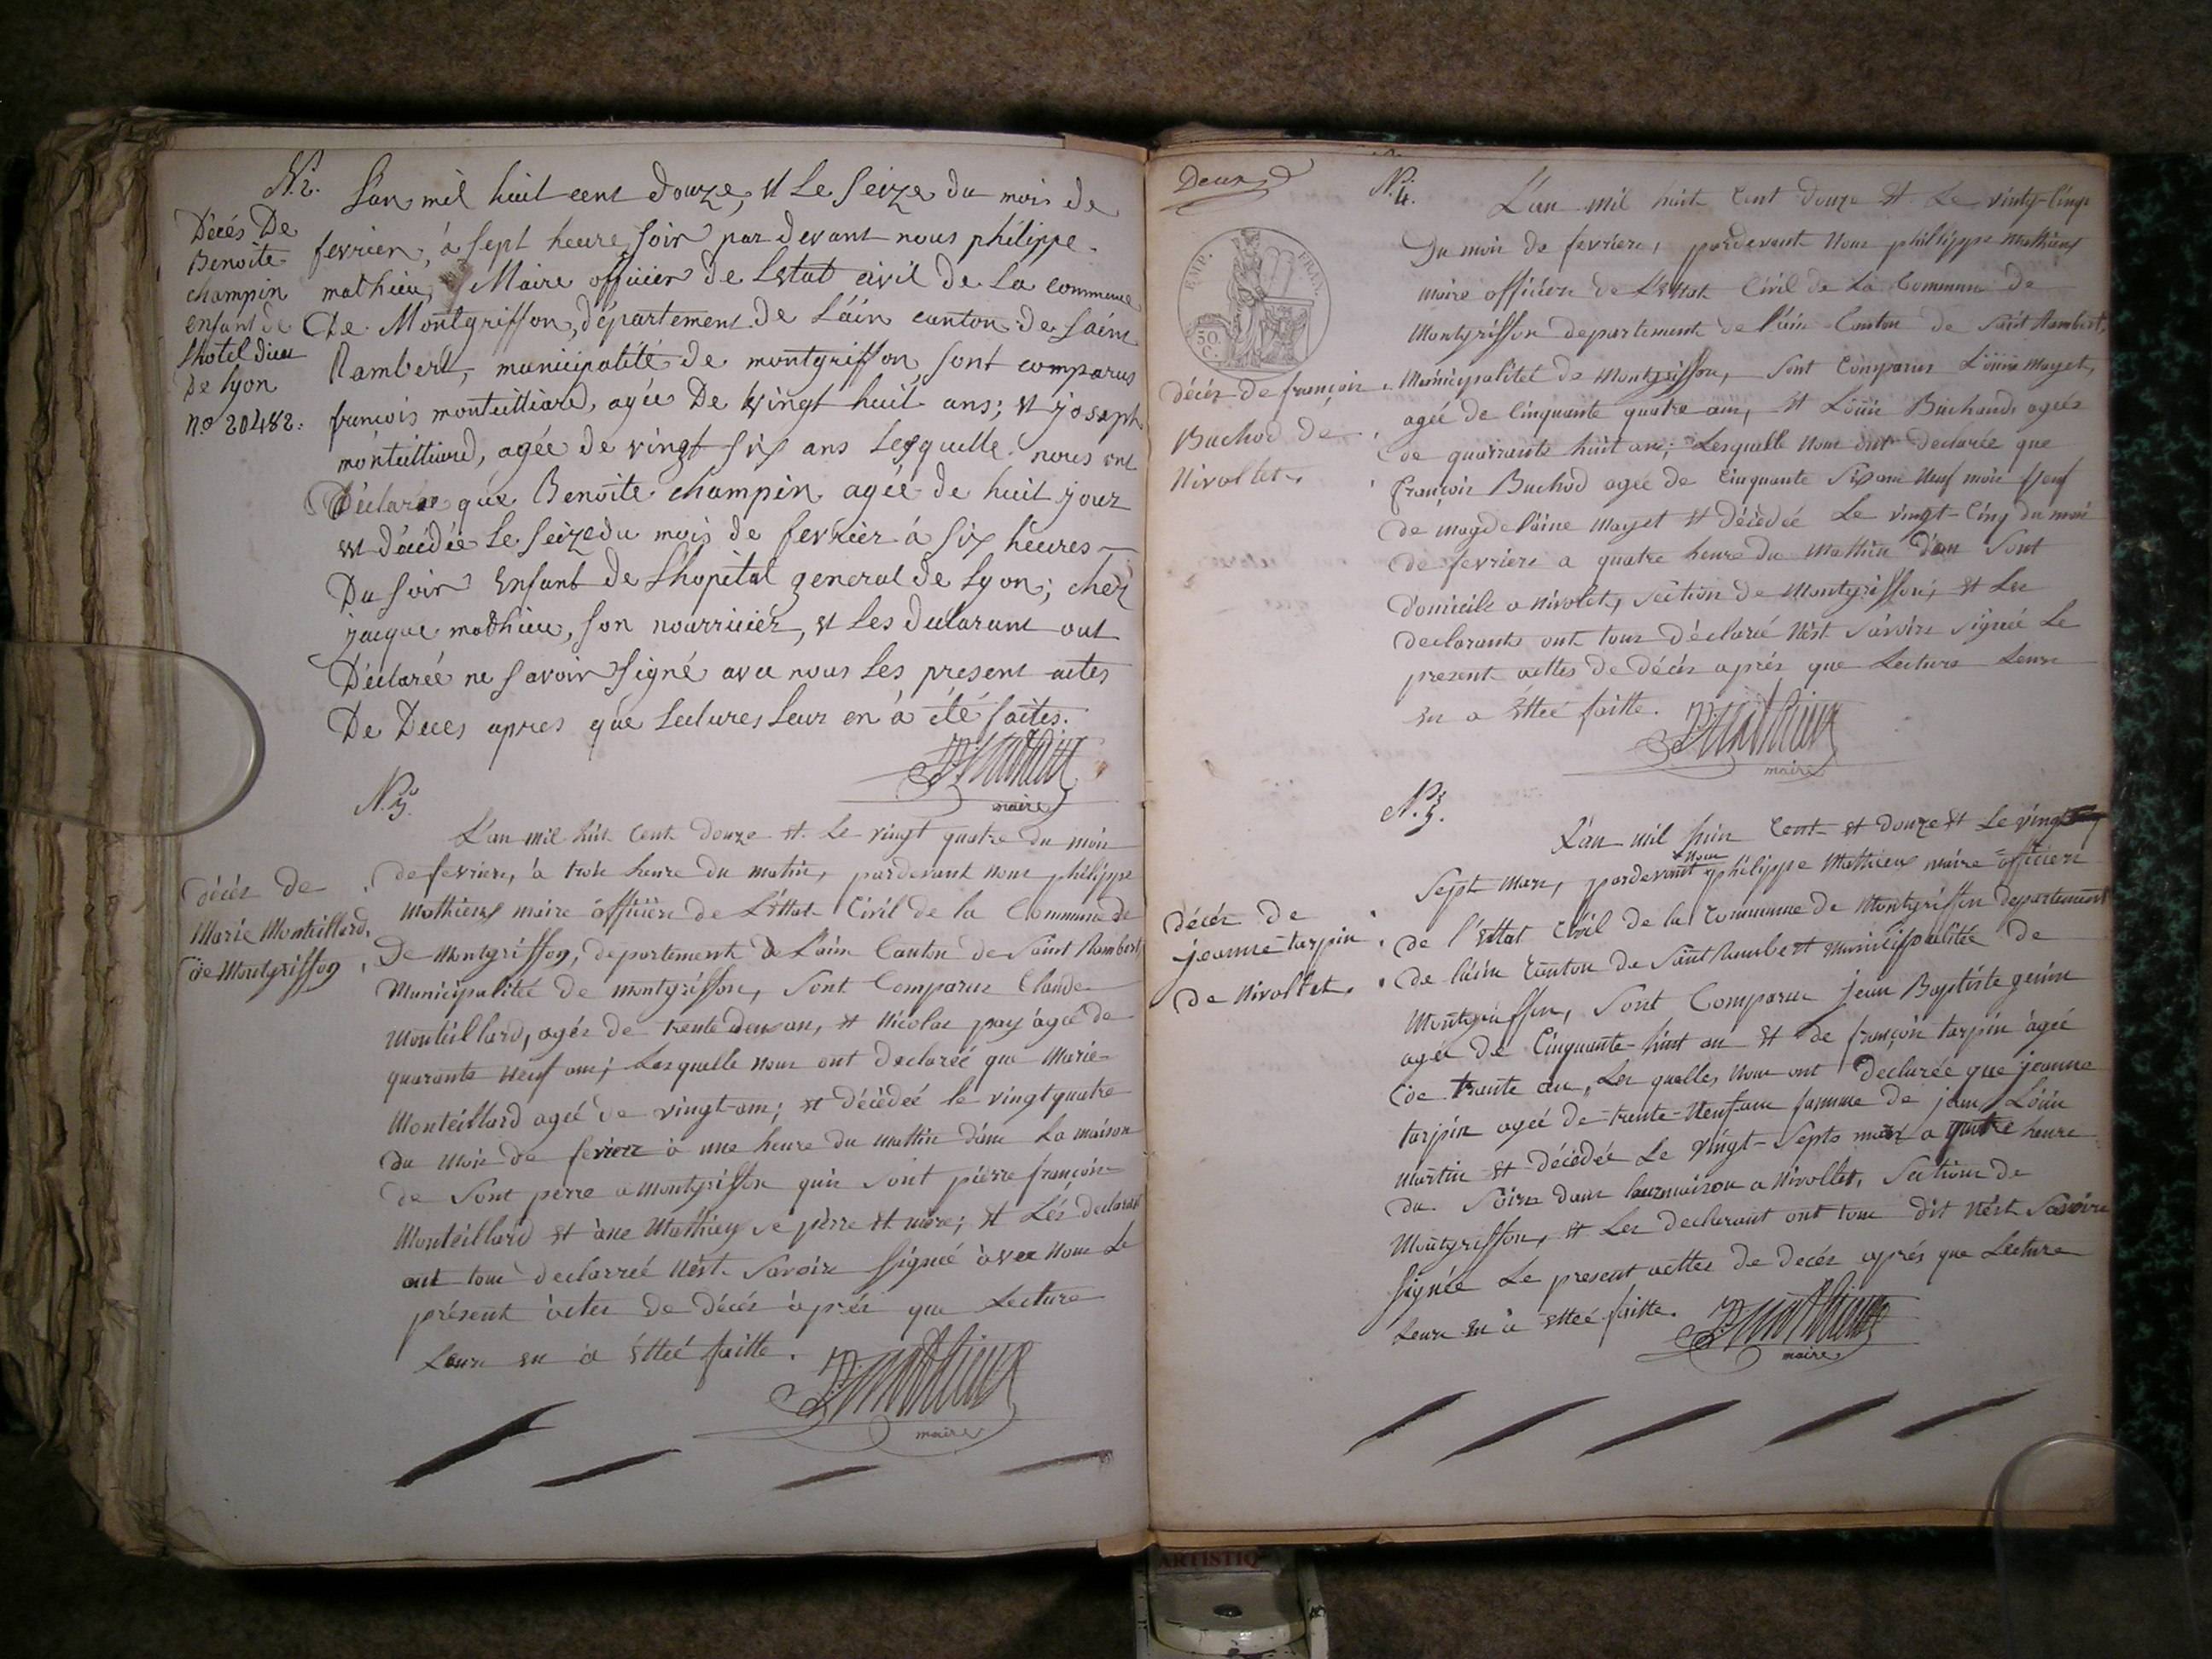 N.2.
Décés De
Benoite
champin
enfant de
Lhotel dieu
De Lyon
n.o 20482.
Lan mil huit cent douze, et Le Seize du mois de
fevrier, á sept heure soir par devant nous philippe
mathieu, Maire officier de Letat civil de La commune
De Montgriffon, département de L'áin canton de saint
Rambert, municipalité de montgriffon sont comparus
francois monteilliard, agée De vingt huit ans; et joseph
monteilliard, agée de vingt six ans Lesquelle nous ont
Déclarée que Benoite champin agée de huit jour
est décédée Le Seize du mois de fevrier á six heures
Du soir Enfant de Lhopital general de Lyon; chez
jacque mathieu, son nourricier, et Les declarant ont
Déclarée ne savoir signé avec nous Les present actes
De Deces apres que Lectures Leur en á été faites.
P. Mathieu
maire
N.3.
décés de
Marie Monteillard
de Montgriffon
L'an mil huit Cent douze et Le vingt quatre du mois
de fevrier, à trois heure du matin, pardevant nous philippe
Mathieu maire officier de L'Ettat Civil de la Commune de
De Montgriffon, departement de L'ain Canton de Saint Rambert
Municipalitée de montgriffon, Sont Comparus Claude
Monteillard, agés de trente deux an, et Nicolas pay agée de
quarante neuf ans; Lesquelle nous ont declarée que Marie
Monteillard agée de vingt ans; et décédée le vingt quatre
du Mois de fevrier à une heure du mattin dans La maison
de Sont perre a Montgriffon quit sont pierre françois
Monteillard et ane Mathieu se pèrre et mère; et Lés declarant
ont tous declarreé nést Savoir signeé avec nous Le
présent actes de décés aprés que Lecture
Leur en a Ettée faitte.
P. Mathieu
maire
Deux
EMP. FRAN.
50
C.
N.4.
décés de françois
Buchod de
Nivollet
L'an mil huit Cent douze et Le vingt-Cinq
Du mois de fevrier, pardevant Nous philippe Mathieu
maire officier de L'Ettat Civil de La Commune de
Montgriffon departement de l'ain Canton de Saint Rambert,
Municipalitet de Montgriffon, Sont Comparus Louis Mayet,
agée de Cinquante quatre ans, et Loüis Buchaud, agées
de quarrante huit ans; Lesquelle nous ont declarée que
françois Buchod agée de Cinquante Six ans Neuf mois veuf
de magdelaine Mayet et décèdée Le vingt-Cinq du moi
de fevrier a quatre heure du Mattin dans Sont
domicile a Nivolet, Section de Montgriffon, et Les
declarants ont tous déclarée nést Savoir signée Le
present acttes de décés aprés que Lecture Leur
en a Ettée faitte.
P. Mathieu
maire
N.5.
décés de
jeanne tarpin
de Nivollet
L'an mil huit Cent et douze et Le vingt
Sept Mars, pardevant nous philippe Mathieu maire officier
de l'Ettat Civil de la Commune de Montgriffon departement
de láin Canton de Saint Rambert Municipalitée de
Montgriffon, Sont Comparus jean Baptiste genin
agée de Cinquante-huit an et de françois tarpin agée
de trante an, Les quelles nous ont declarée que jeanne
tarpin agée de trente-Neuf ans famme de jean Loüis
Martin et décédée Le vingt-Septs mars a quatre heure
du Soir dans Leur maison a Nivollet, Section de
Montgriffon, et Les declarant ont tous dit nést Savoire
signée Le present acttes de decés aprés que Lecture
Leur en a ettée faitte.
P. Mathieu
maire
ARTISTIQ